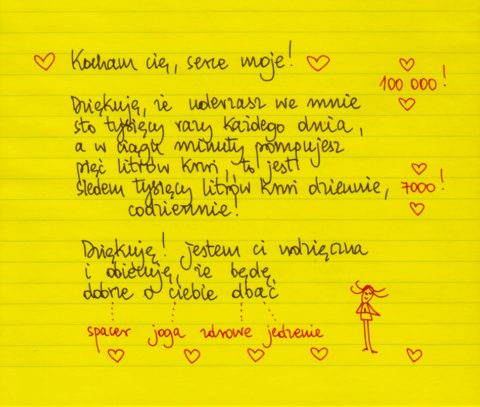 Kocham cię, serce moje!
100 000!
Dziękuję, że uderzasz we mnie
sto tysięcy razy każdego dnia,
a w ciągu minuty pompujesz
pięć litrów krwi, to jest
siedem tysięcy litrów krwi dziennie, 7000!
codziennie!
Dziękuję! Jestem ci wdzięczna
i obiecuję, że będę
dobrze o ciebie dbać
spacer joga zdrowe jedzenie